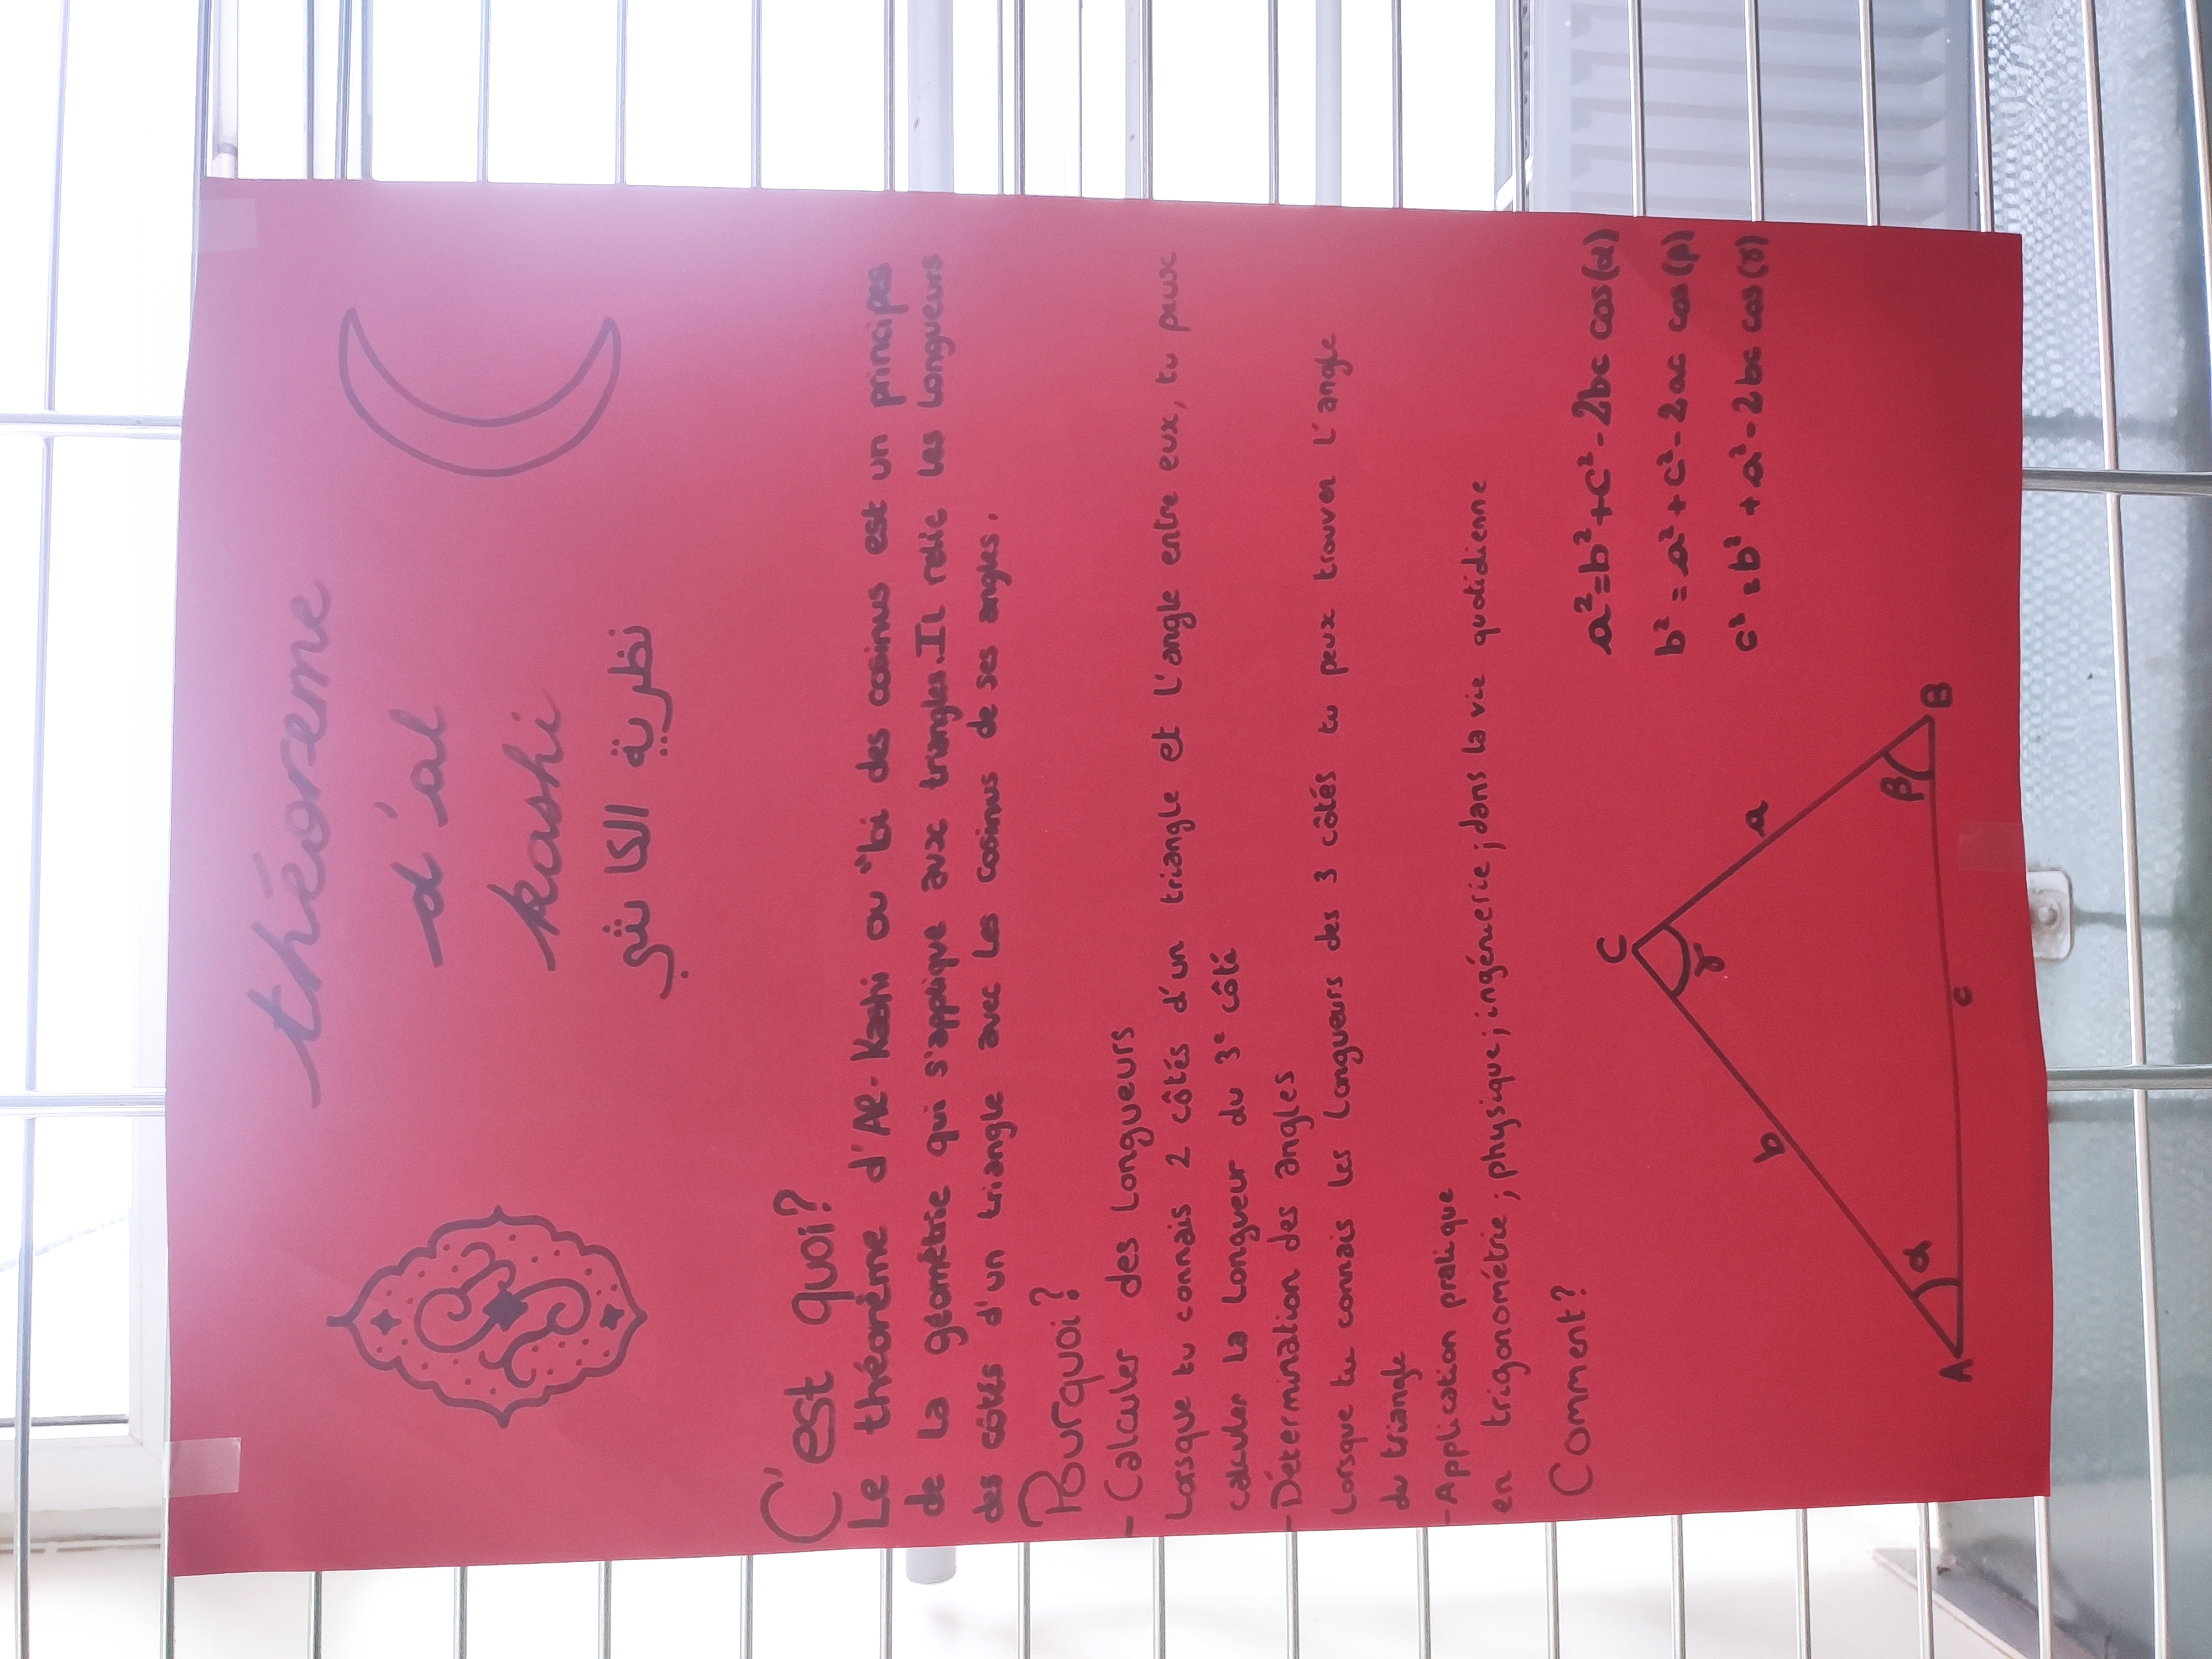 théoreme
d'al
kashi
نظرية الكاشي
C'est quoi?
Le théorème d'Al-Kashi ou "loi des cosinus est un principes
de la géométrie qui s'applique aux triangles. Il relie les longueurs
des côtés d'un triangle avec les cosinus de ses angles.
Pourquoi?
- Calculer des longueurs
Lorsque tu connais 2 côtés d'un triangle et l'angle entre eux, tu peux
calculer la longueur du 3e côté
- Détermination des angles
Lorsque tu connais les longueurs des 3 côtés tu peux trouver l'angle
du triangle
- Application pratique
en trigonométrie ; physique ; ingénierie ; dans la vie quotidienne
Comment?
a²=b²+c²-2bc cos(α)
b²=a²+c²-2ac cos(β)
c²=b²+a²-2bc cos(γ)
C
γ
b
a
A
α
β
B
c